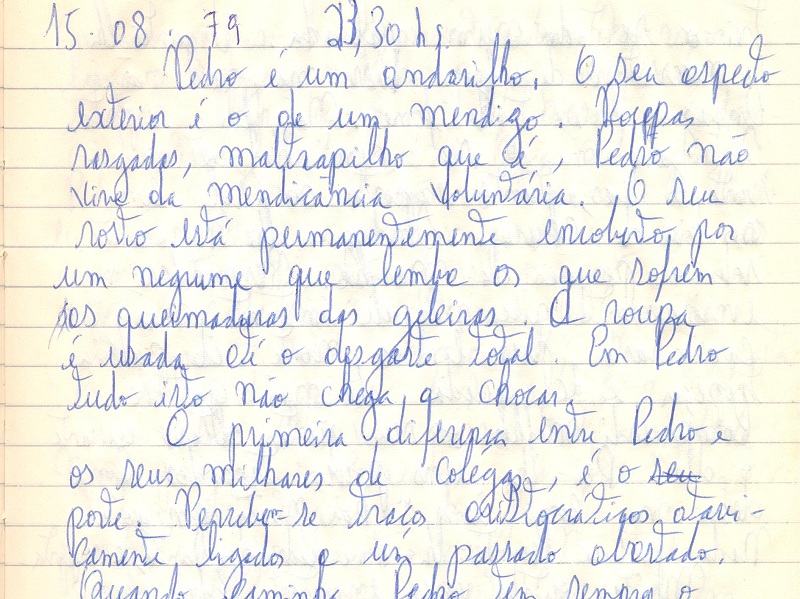 15.08.79 23,30 hs.
Pedro é um andarilho. O seu aspecto
exterior é o de um mendigo. Roupas
rasgadas, maltrapilho que é, Pedro não
vive da mendicância voluntária. O seu
rosto está permanentemente encoberto por
um negrume que lembra os que sofrem
as queimaduras das geleiras. A roupa
é usada até o desgaste total. Em Pedro
tudo isto não chega a chocar.
A primeira diferença entre Pedro e
os seus milhares de colegas, é o seu
porte. Percebem-se traços aristocráticos atavi-
camente ligados a um passado abastado.
Quando caminha Pedro tem sempre o